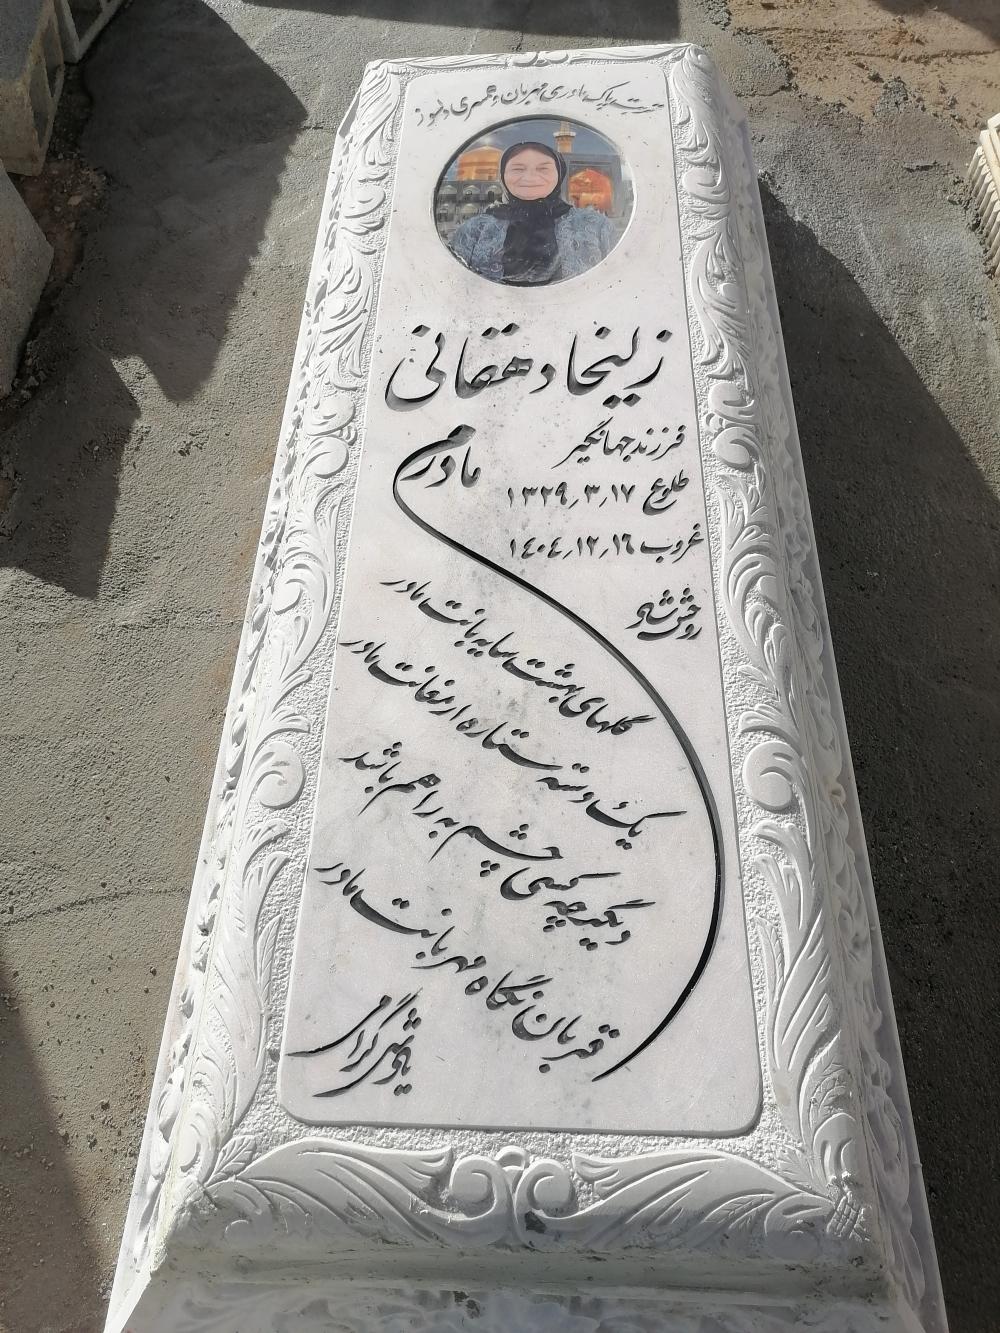 تربت پاک مادری مهربان و همسری دلسوز
زلیخا دهقانی
فرزند جهانگیر
مادرم
طلوع ۱۳۲۹٫۳٫۱۷
غروب ۱۴۰۴٫۱۲٫۱۶
روحش شاد
گلهای بهشت سایه بانت مادر
یک دسته ستاره ارمغانت مادر
دیگر چه کسی چشم به راهم باشد
قربان نگاه مهربانت مادر
یادش گرامی